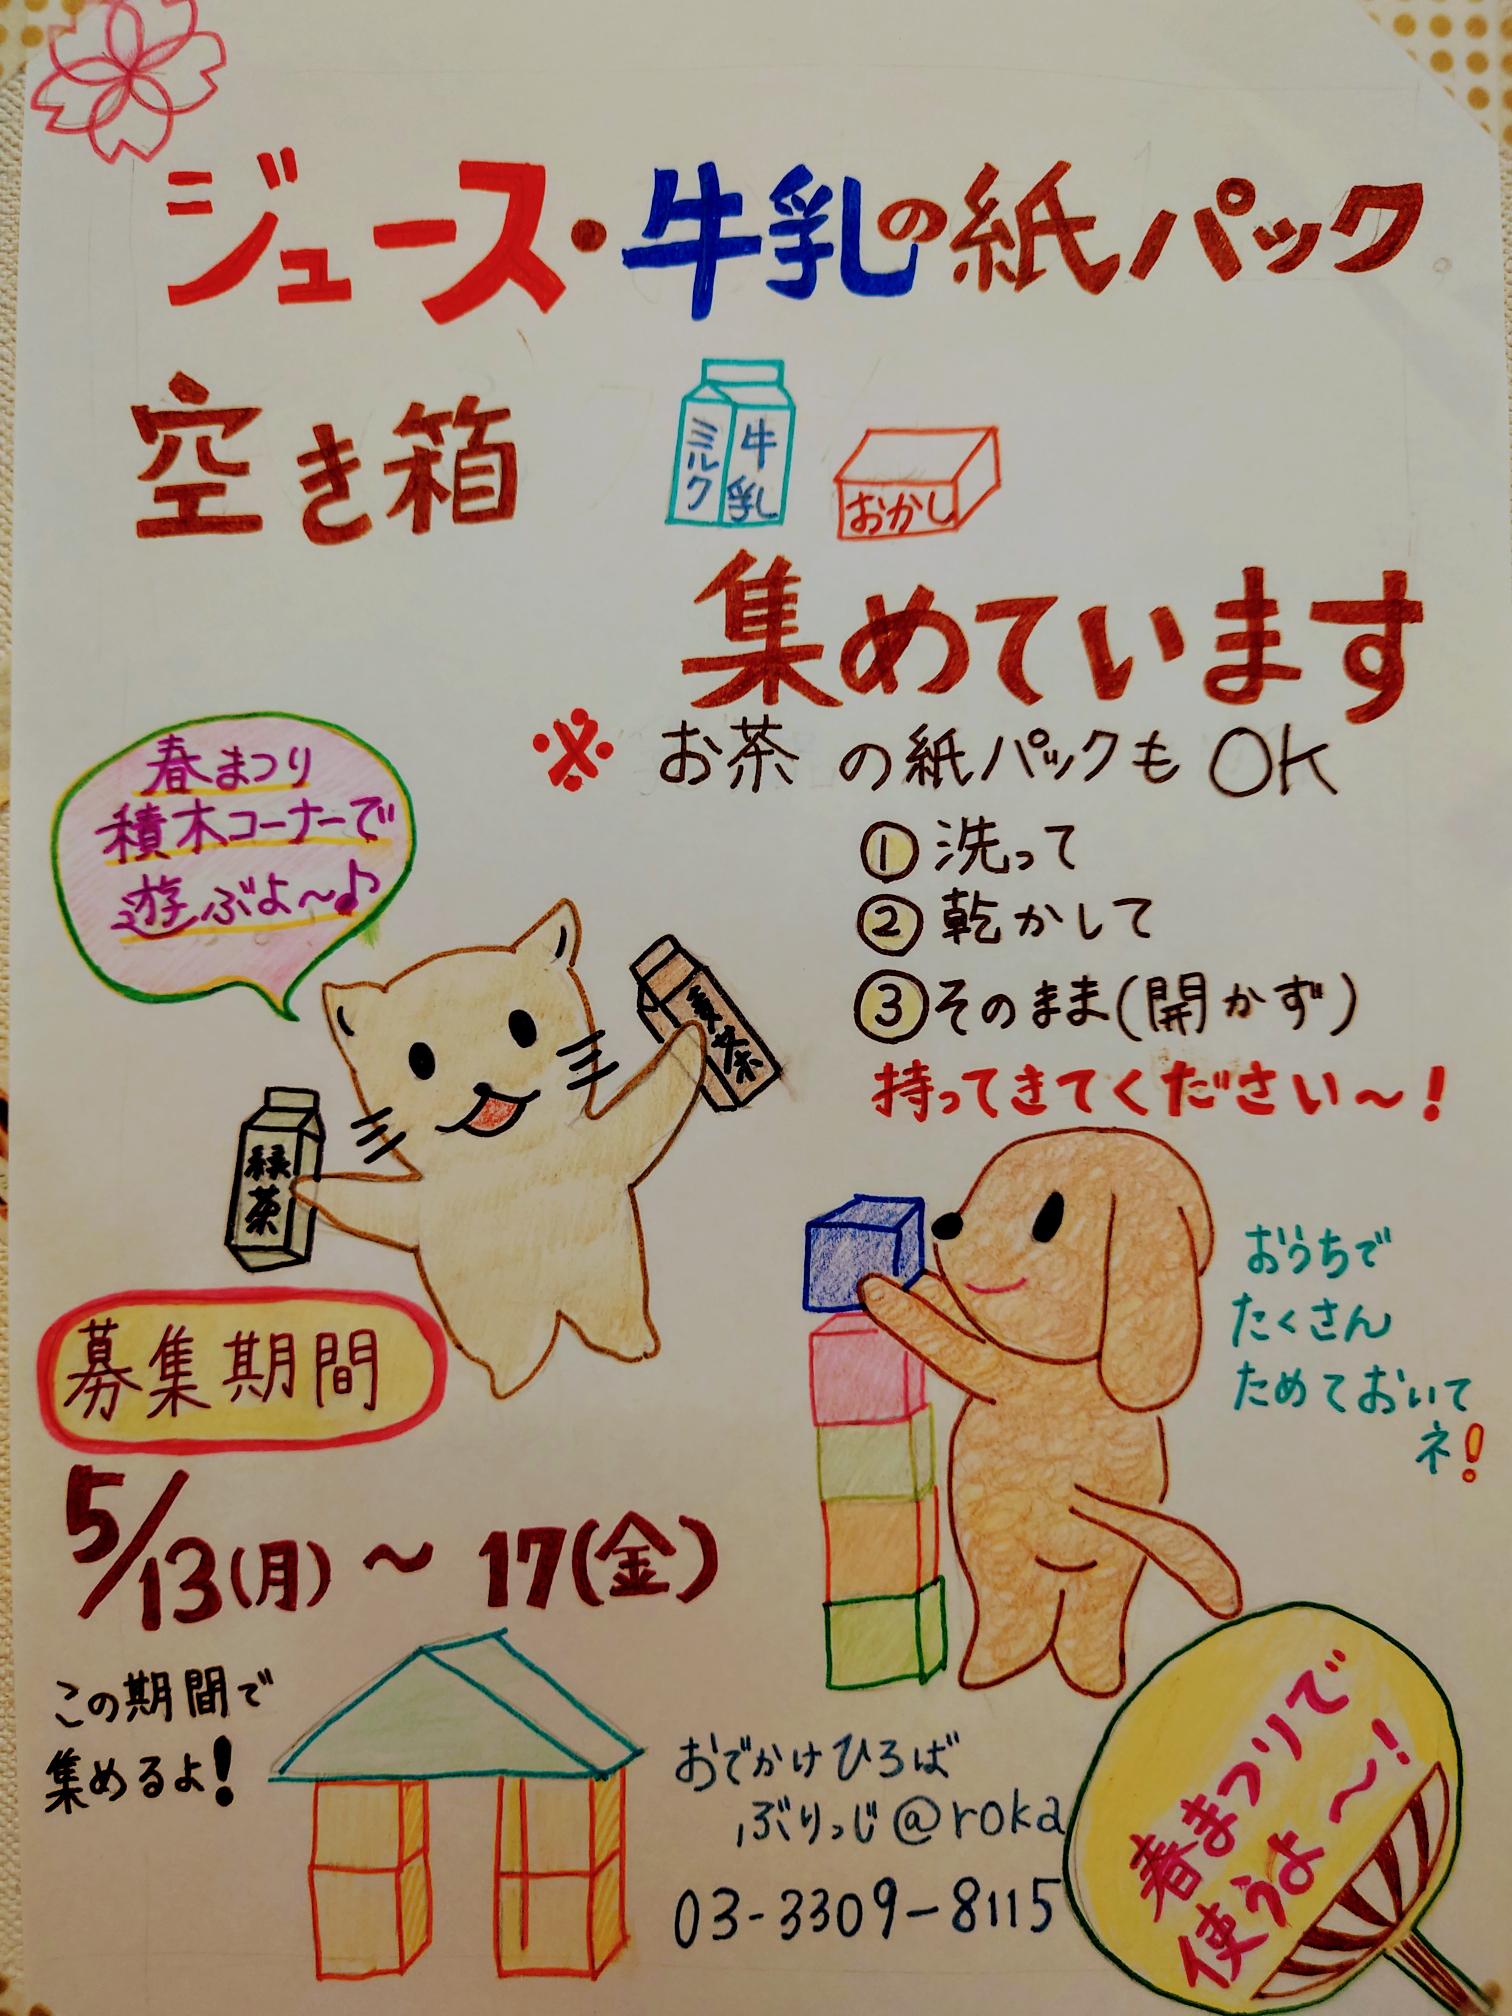 ジュース・牛乳の紙パック
空き箱
ミルク
牛乳
おかし
集めています
※お茶の紙パックもOK
①洗って
②乾かして
③そのまま(開かず)
持ってきてください～!
春まつり
積木コーナーで
遊ぶよ～♪
麦茶
緑茶
おうちで
たくさん
ためておいて
ネ!
募集期間
5/13(月)～17(金)
この期間で
集めるよ!
おでかけひろば
ぶりっじ@roka
03-3309-8115
春まつりで
使うよ～!